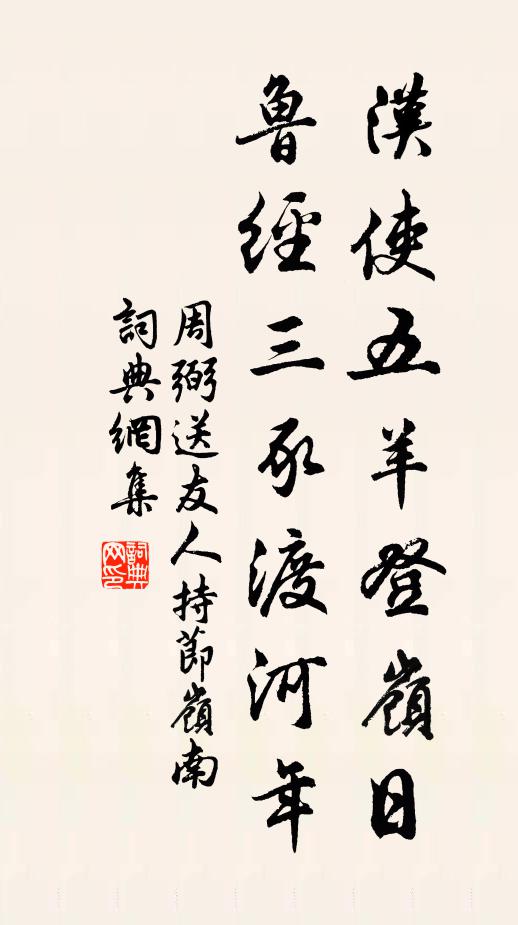 漢使五羊登嶺日
魯經三豕渡河年
周弼送友人持節嶺南
詞典網集
詞典網印